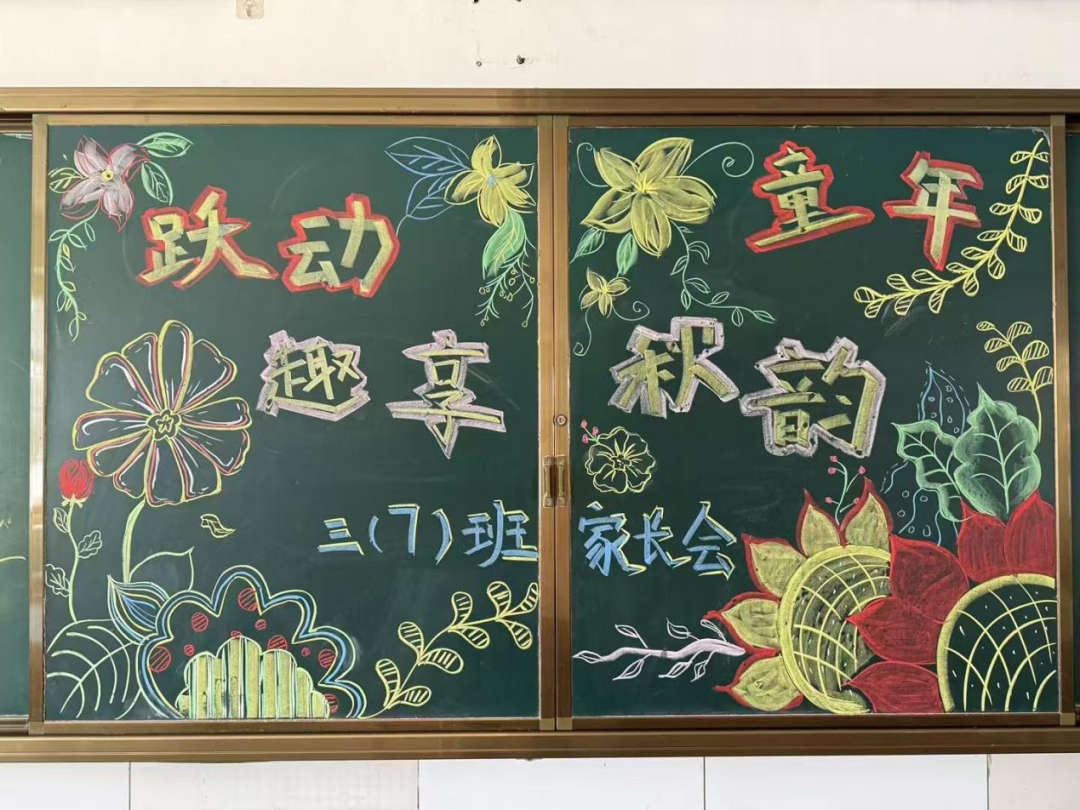 跃动 童年
趣享 秋韵
三(7)班 家长会